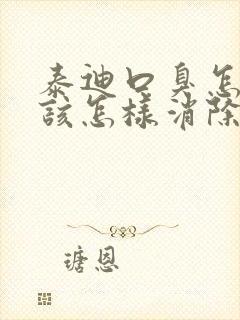 泰迪口臭怎
該怎樣消除
瑭恩